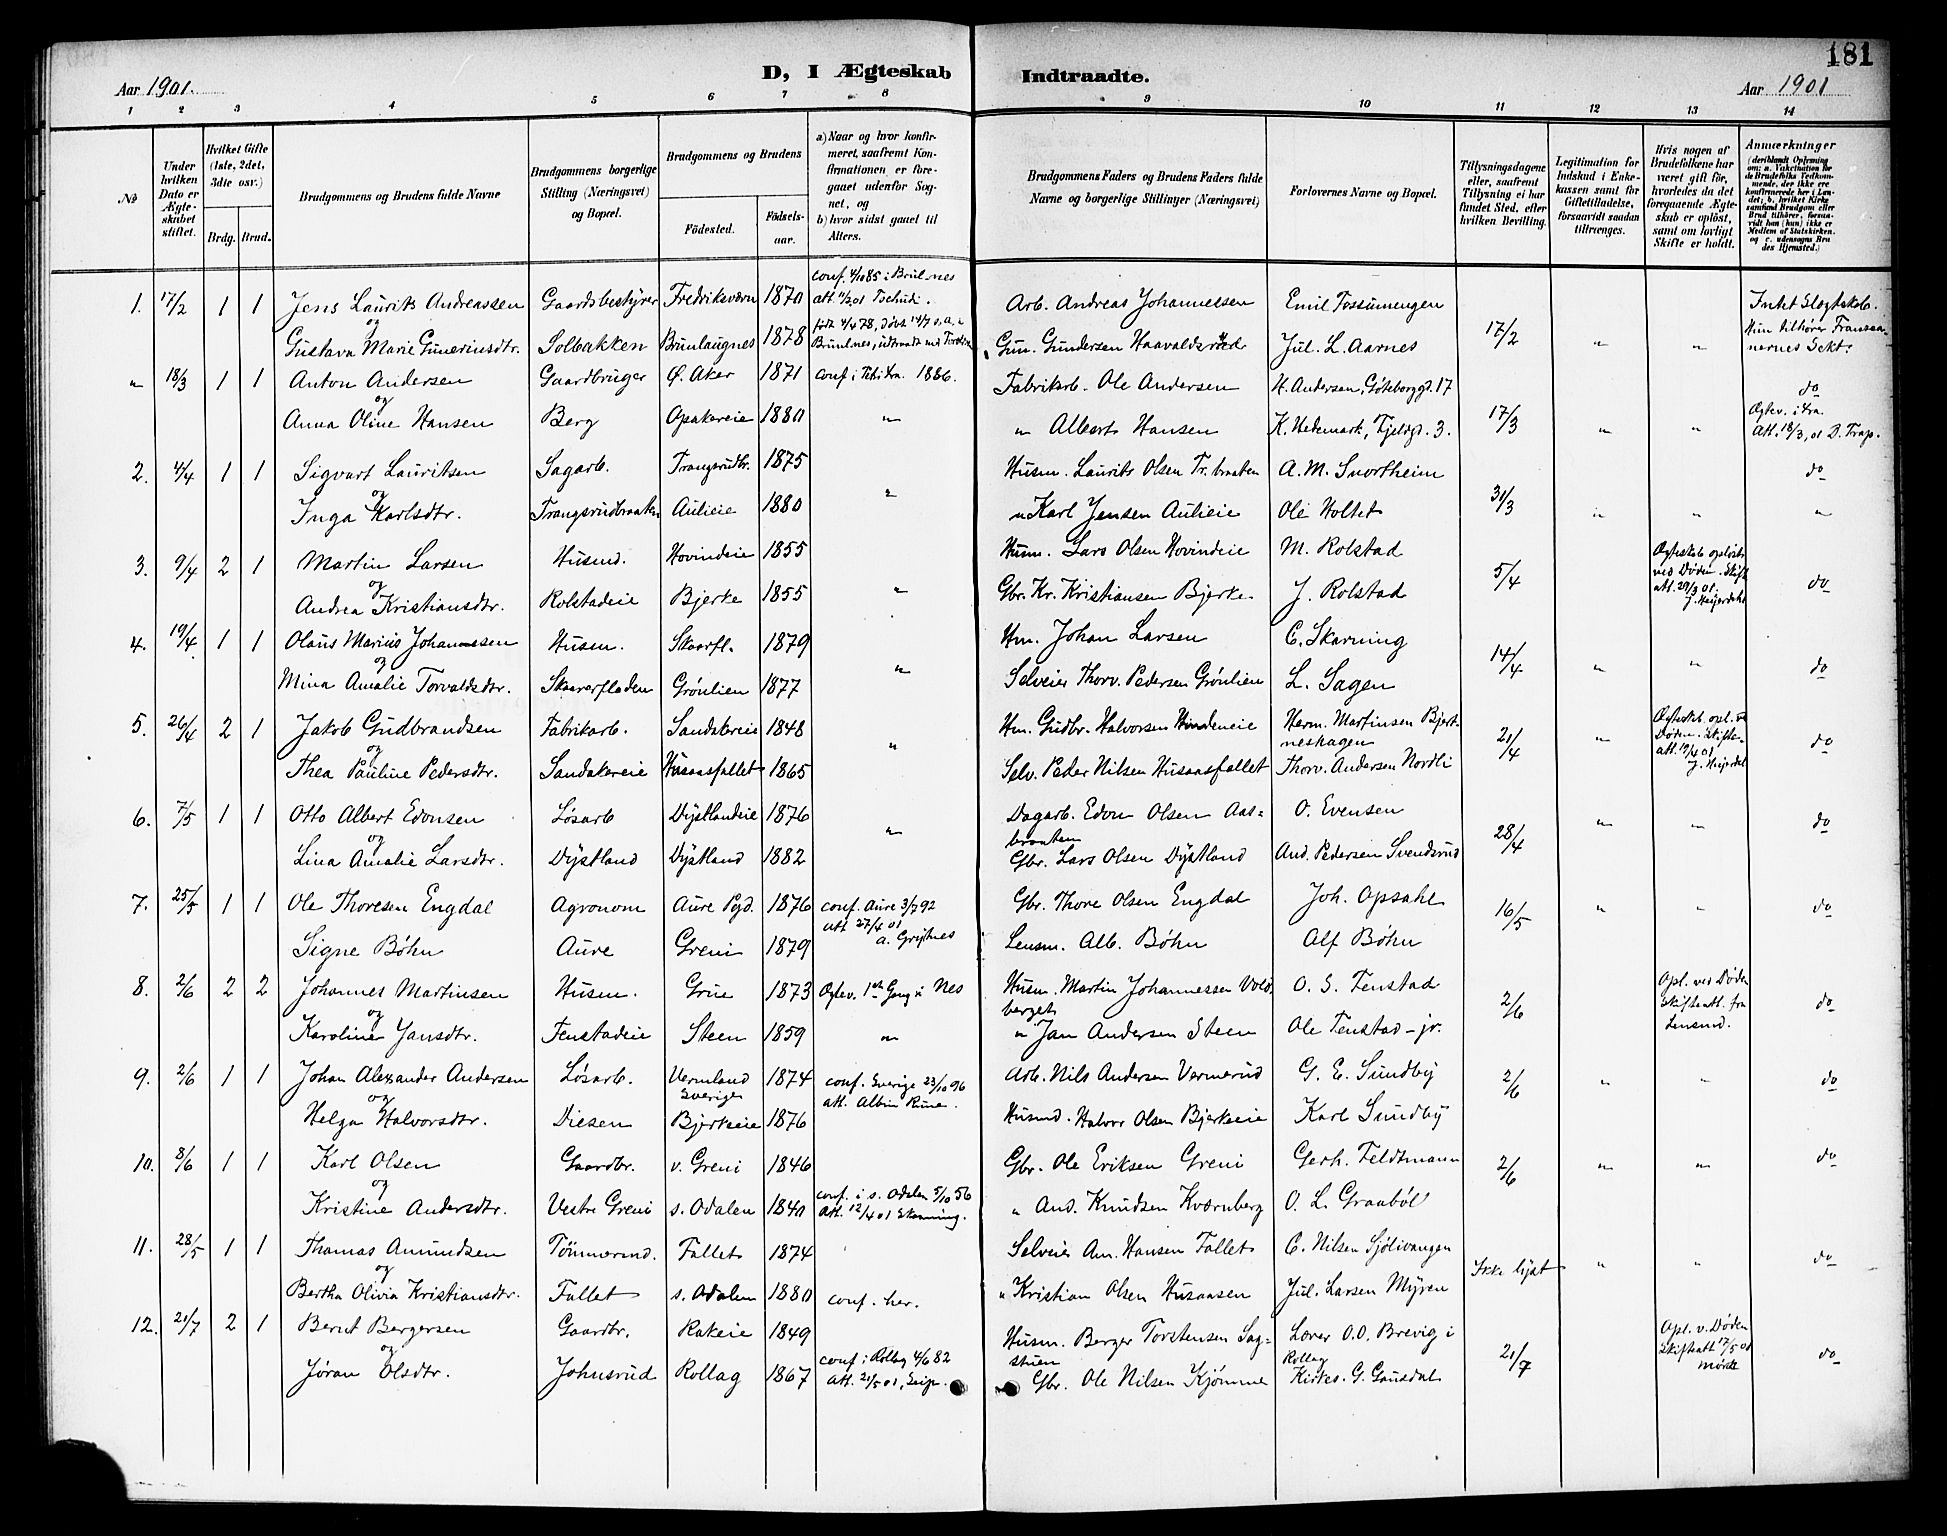 181
D, I Ægteskab Indtraadte.
Aar 1901. Aar 1901
1 2 3 4 5 6 7 8 9 10 11 12 13 14
No
Under hvilken Dato er Ægteskabet stiftet.
Hvilket Gifte (1ste, 2det, 3die osv.)
Brdg. Brud.
Brudgommens og Brudens fulde Navne
Brudgommens borgerlige Stilling (Næringsvei) og Bopæl.
Brudgommens og Brudens
Födested. Födsels-aar.
a) Naar og hvor konfirmeret, saafremt Konfirmationen er foregaaet udenfor Sognet, og
b) hvor sidst gaaet til Alters.
Brudgommens Faders og Brudens Faders fulde Navne og borgerlige Stillinger (Næringsvei)
Forlovernes Navne og Bopæl.
Tillysningsdagene eller, saafremt Tillysning ei har fundet Sted, efter hvilken Bevilling.
Legitimation for Indskud i Enkekassen samt for Giftetilladelse, forsaavidt saadan tiltrænges.
Hvis nogen af Brudefolkene har været gift før, hvorledes da det foregaaende Ægteskab er opløst, samt om lovligt Skifte er holdt.
Anmærkninger
1. 17/2 1 1 Jens Laurits Andreassen Gaardsbestyrer Fredriksværn 1870 conf. 4/10 85 i Brul-nes Arb. Andreas Johannessen Emil Tossumengen Intet Slegtskab.
og att. 11/2 01 Tschudi. 17/2 " "
Gustava Marie Gunerinsdtr. Solbakken Brunlaugnes 1878 født 4/4 78, døbt 14/7 s.a. i Gun. Gundersen Haavaldsrød Jul. L. Aarnes Hun tilhører
" 18/3 1 1 Anton Andersen Gaardbruger Ø. Aker 1871 conf. i 1886. Fabrikarb. Ole Andersen H. Andersen, Göteborggt. 17 do
og 17/3 " "
Anna Oline Hansen Berg Opakereie 1880 " " Albert Hansen K. Hedemark, 3. Att. 18/3, 01 D. Trap.
2. 4/4 1 1 Sigvart Lauritsen Sagarb. Trangsrudbr. 1875 Husm. Laurits Olsen Tr. braaten A. M. Snortheim do
og " 31/3 " "
Inga Karlsdtr. Trangsrudbraaten Aulieie 1880 " Karl Jensen Aulieie Ole Holtet "
3. 9/4 2 1 Martin Larsen Husmd. Hovindeie 1855 Husm. Lars Olsen Hovindeie M. Rolstad Ægteskab opløst
og 5/4 ved Døden. Skifte
Andrea Kristiansdtr. Rolstadeie Bjerke 1855 " Gbr. Kr. Kristiansen Bjerke. J. Rolstad att. 29/3 01. do
4. 19/4 1 1 Olaus Marius Johannessen Husm. Skaarfl. 1879 Hm. Johan Larsen C. Skarning
og " 14/4 " " do
Mina Amalie Torvaldsdtr. Skaarerfladen Grönlien 1877 Selveier Thorv. Pedersen Grönlien L. Sagen
5. 26/4 2 1 Jakob Gudbrandsen Fabrikarb. Sandakereie 1848 Hm. Gudbr. Halvorsen Hindeneie Herm. Martinsen Bjert- Ægteskb. opl. v.
og " neshagen 21/4 " Døden. Skifte- do
Thea Pauline Pedersdtr. Sandakereie Husaasfallet 1865 Selv. Peder Nilsen Husaasfallet Thorv. Andersen Nordli att. 19/4 01
6. 7/5 1 1 Otto Albert Edonsen Løsarb Dystlandeie 1876 Dagarb. Edon Olsen Aas- O. Evensen
og " braaten 28/4 " " do
Lina Amalie Larsdtr. Dystland Dystland 1882 Gbr. Lars Olsen Dystland And. Pedersen Svendsrud
7. 25/5 1 1 Ole Thoresen Engdal Agronom Aure Pgd. 1876 conf. Aure 3/7 92 Gbr. Thore Olsen Engdal Joh. Opsahl
att 27/4 01 16/5 " " do
Signe Bøhn Aure Greni 1879 a. Grystnes Lensm. Alb. Bøhn Alf Bøhn
8. 2/6 2 2 Johannes Martinsen Husm. Grue 1873 Ogtev. 1ste Gang i Nes Husm. Martin Johannessen Vold O. S. Fenstad Opl. ved Døden
og berget 2/6 Skifteatt. fra do
Karoline Jansdtr. Fenstadeie Steen 1859 " " Jan Andersen Steen Ole Fenstad - jr. Lensmd.
9. 2/6 1 1 Johan Alexander Andersen Løsarb. Vermland 1874 conf. Sverige 23/10 96 Arb. Nils Andersen Vermerud G. E. Sundby
og Sverige att. Albin Rune. 2/6 " " do
Helga Halvorsdtr. Diesen Bjerkeie 1876 Husmd. Halvor Olsen Bjerkeie Karl Sundby
10. 8/6 1 1 Karl Olsen Gaardbr. v. Greni 1846 Gbr. Ole Eriksen Greni Gerh. Feldtmann do
og conf. i s. Odalen 5/10 56 2/6 " "
Kristine Andersdtr. Vestre Greni s. Odalen 1840 att. 12/4 01 Skanning. " And. Knudsen Kværnberg O. L. Graabøl
11. 28/5 1 1 Thomas Amundsen Tømmermd. Fallet 1874 Selveier Am. Hansen Fallet C. Nilsen Sjølivangen
og Ikke lyst " " do
Bertha Olivia Kristiansdtr. Fallet s. Odalen 1880 conf. her. " Kristian Olsen Husaasen Jul. Larsen Myren
12. 21/7 2 1 Bernt Bergersen Gaardbr. Rakeie 1849 Husm. Berger Torstensen Sag- Lærer O.O. Brevig i Opl. v. Døden
og conf. i Rollag 4/6 82 stuen Rollag 21/7 Skifteatt 17/5 01 do
Jøran Olsdtr. Johnsrud Rollag 1867 att. 21/5 01, Gbr. Ole Nilsen Kjømme Kirkes. G. Gausdal